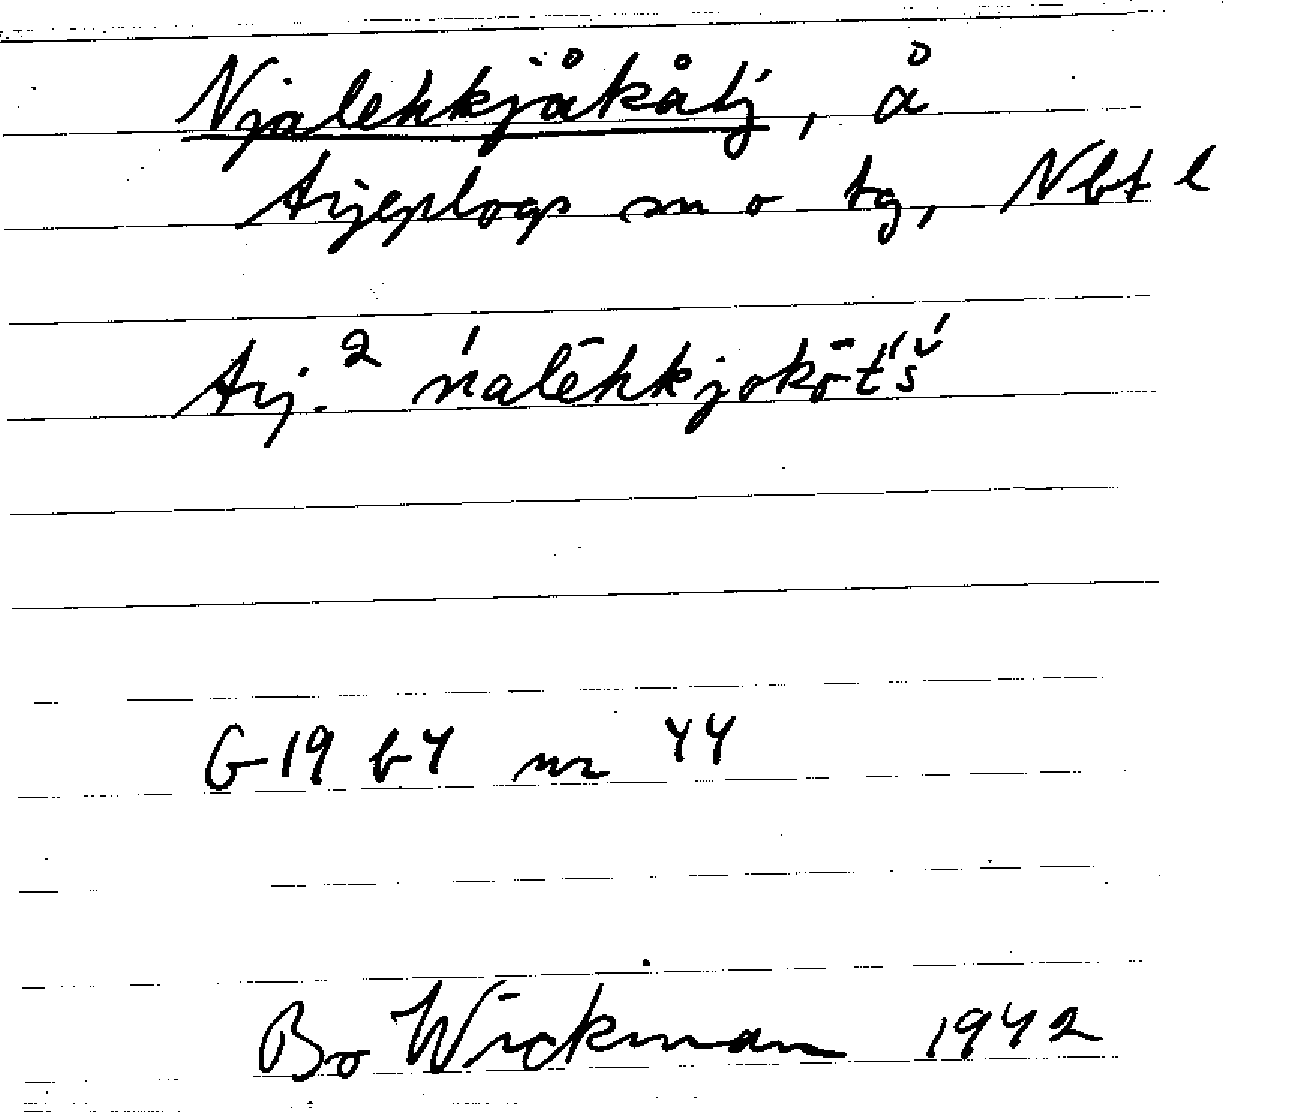 Njalehkjåkåtj, å
Arjeplogs sn o tg, Nbt l
Arj.² ńalēhkjokō̬t́š́
G 19 b 4 nr 44
Bo Wickman 1942